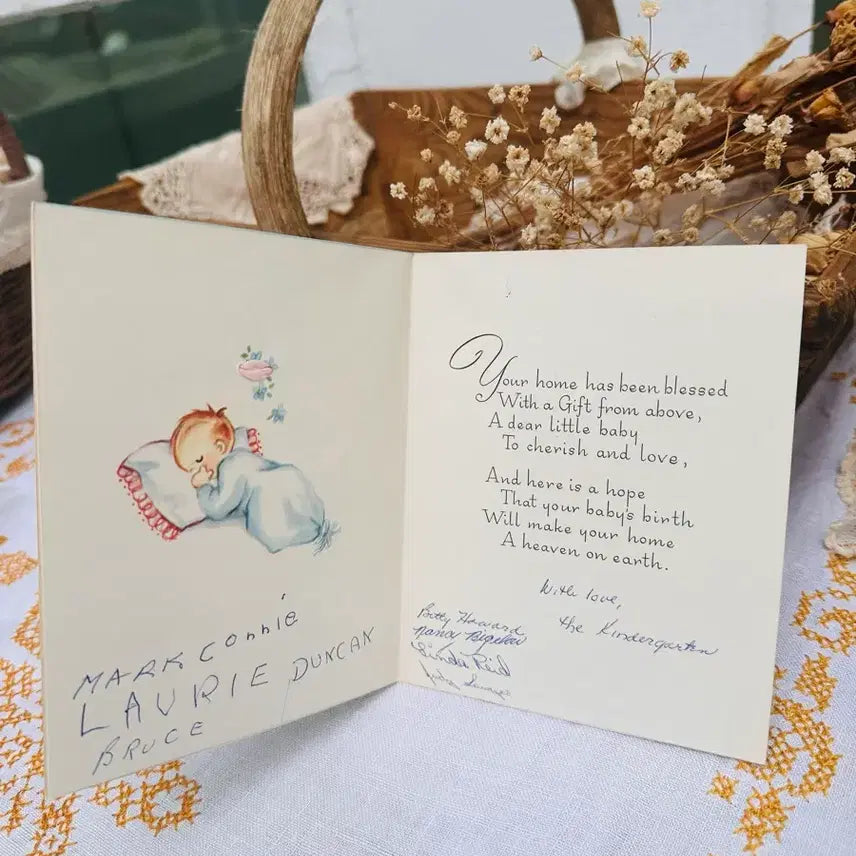 MARK Connie
LAURIE DUNCAN
BRUCE
Your home has been blessed
With a Gift from above,
A dear little baby
To cherish and love,
And here is a hope
That your baby's birth
Will make your home
A heaven on earth.
With love,
the Kindergarten
Betty Howard
Nancy
Linda Reid
Judy